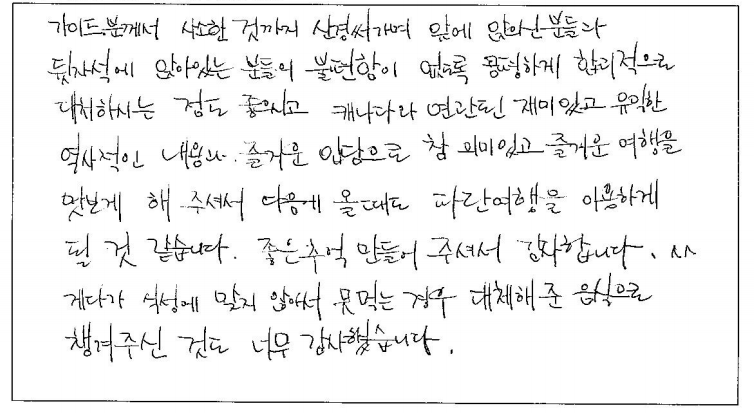 가이드분께서 사소한 것까지 신경써가며 앞에 앉으신분들과
뒷자석에 앉아있는 분들의 불편함이 없도록 공평하게 합리적으로
대처하시는 점도 좋으시고 캐나다와 연관된 재미있고 유익한
역사적인 내용과 즐거운 입담으로 참 의미있고 즐거운 여행을
맛보게 해 주셔서 다음에 올때도 파란여행을 이용하게
될 것 같습니다. 좋은추억 만들어 주셔서 감사합니다. ^^
게다가 식성에 맞지 않아서 못먹는 경우 대체해 준 음식으로
챙겨주신 것도 너무 감사했습니다.